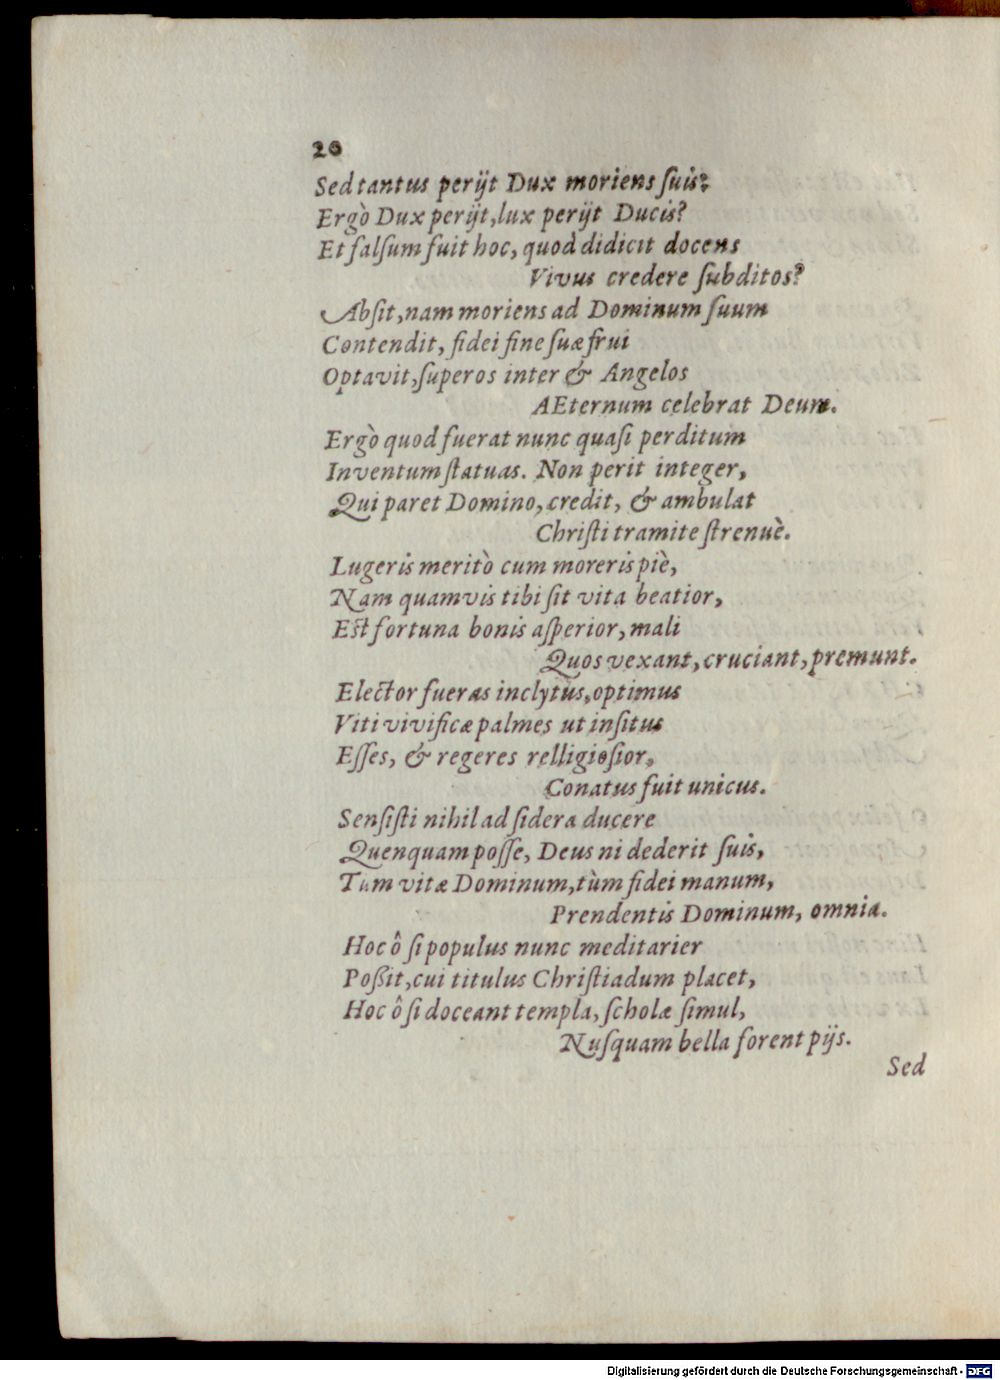 20
Sed tantus perijt Dux moriens ſuis?
Ergò Dux perijt, lux perijt Ducis?
Et falſum fuit hoc, quod didicit docens
Vivus credere ſubditos?
Abſit, nam moriens ad Dominum ſuum
Contendit, fidei fine ſuæ frui
Optavit, ſuperos inter & Angelos
AEternum celebrat Deum.
Ergò quod fuerat nunc quaſi perditum
Inventum ſtatuas. Non perit integer,
Qui paret Domino, credit, & ambulat
Chriſti tramite ſtrenuè.
Lugeris meritò cum moreris piè,
Nam quamvis tibi ſit vita beatior,
Eſt fortuna bonis aſperior, mali
Quos vexant, cruciant, premunt.
Elector fueras inclytus, optimus
Viti vivificæ palmes ut inſitus
Eſſes, & regeres relligioſior,
Conatus fuit unicus.
Senſiſti nihil ad ſidera ducere
Quenquam poſſe, Deus ni dederit ſuis,
Tùm vitæ Dominum, tùm fidei manum,
Prendentis Dominum, omnia.
Hoc ô ſi populus nunc meditarier
Poßit, cui titulus Chriſtiadum placet,
Hoc ô ſi doceant templa, ſcholæ ſimul,
Nuſquam bella forent pijs.
Sed
Digitalisierung gefördert durch die Deutsche Forschungsgemeinschaft - DFG